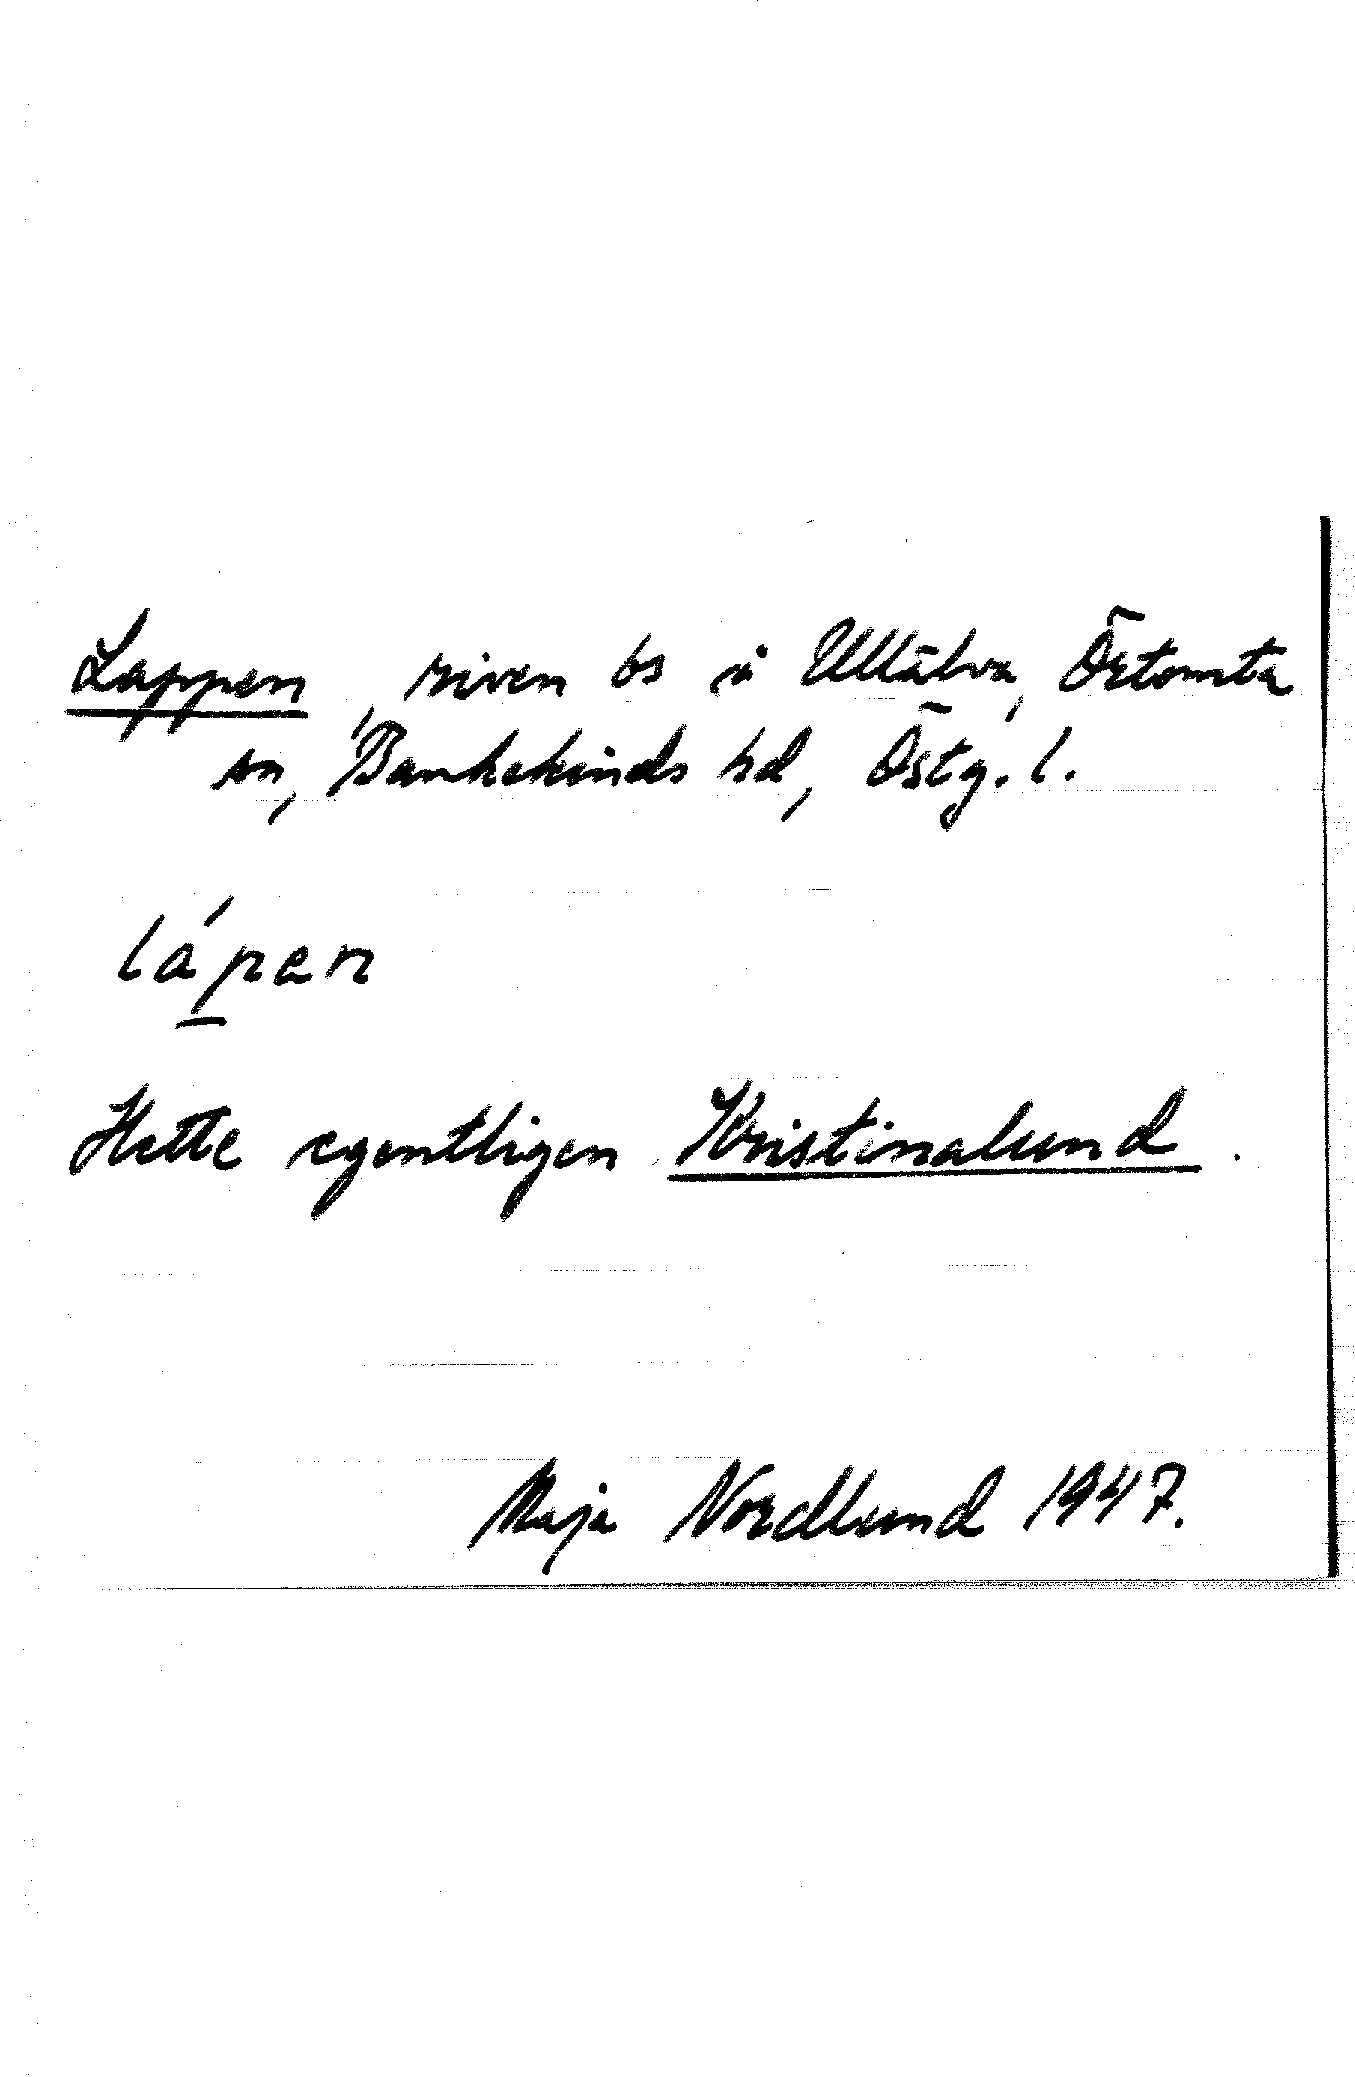 Lappen, riven bs å Ullälva, Örtomta
sn, Bankekinds hd, Östg. l.
lápen
Hette egentligen Kristinalund.
Maja Nordlund 1947.